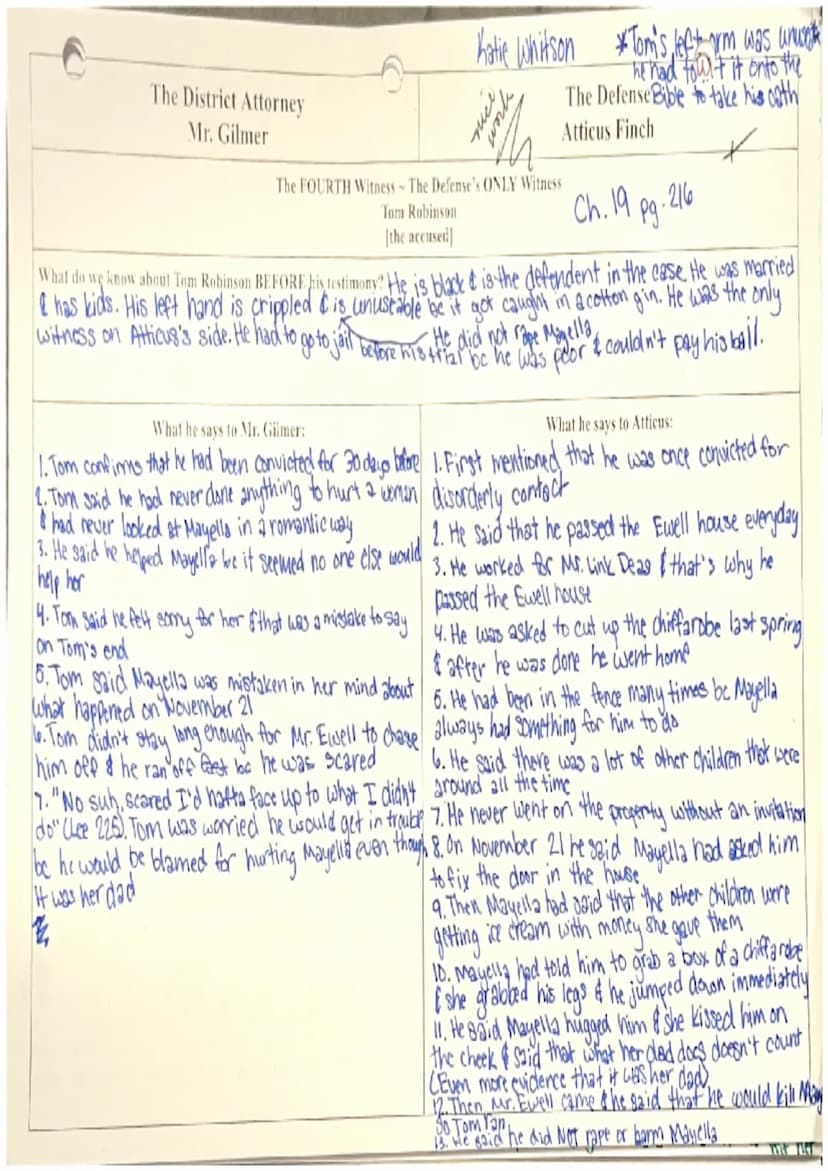 Katie Whitson
*Tom's left arm was unuseable
he had to lift it onto the
Bible to take his oath
The District Attorney
Mr. Gilmer
nice
work
The Defense
Atticus Finch
The FOURTH Witness ~ The Defense's ONLY Witness
Tom Robinson
[the accused]
Ch. 19 pg. 216
What do we know about Tom Robinson BEFORE his testimony? He is black & is the defendent in the case. He was married
& has kids. His left hand is crippled & is unuseable bc it got caught in a cotton gin. He was the only
witness on Atticus's side. He had to go to jail before his trial bc he was poor & couldn't pay his bail.
He did not rape Mayella
What he says to Mr. Gilmer:
1. Tom confirms that he had been convicted for 30 days before
2. Tom said he had never done anything to hurt a woman
& had never looked at Mayella in a romantic way
3. He said he helped Mayella bc it seemed no one else would
help her
4. Tom said he felt sorry for her & that was a mistake to say
on Tom's end
5. Tom said Mayella was mistaken in her mind about
what happened on November 21
6. Tom didn't stay long enough for Mr. Ewell to chase
him off & he ran off fast bc he was scared
7. "No suh, scared I'd hafta face up to what I didn't
do" (Lee 225). Tom was worried he would get in trouble
bc he would be blamed for hurting Mayella even though
it was her dad
What he says to Atticus:
1. First mentioned that he was once convicted for
disorderly contact
2. He said that he passed the Ewell house everyday
3. He worked for Mr. Link Deas & that's why he
passed the Ewell house
4. He was asked to cut up the chiffarobe last spring
& after he was done he went home
5. He had been in the fence many times bc Mayella
always had something for him to do
6. He said there was a lot of other children that were
around all the time
7. He never went on the property without an invitation
8. On November 21 he said Mayella had asked him
to fix the door in the house
9. Then Mayella had said that the other children were
getting ice cream with money she gave them
10. Mayella had told him to grab a box of a chiffarobe
& she grabbed his legs & he jumped down immediately
11. He said Mayella hugged him & she kissed him on
the cheek & said that what her dad does doesn't count
(Even more evidence that it was her dad)
12. Then Mr. Ewell came & he said that he would kill May
so Tom ran
13. He said he did NOT rape or harm Mayella